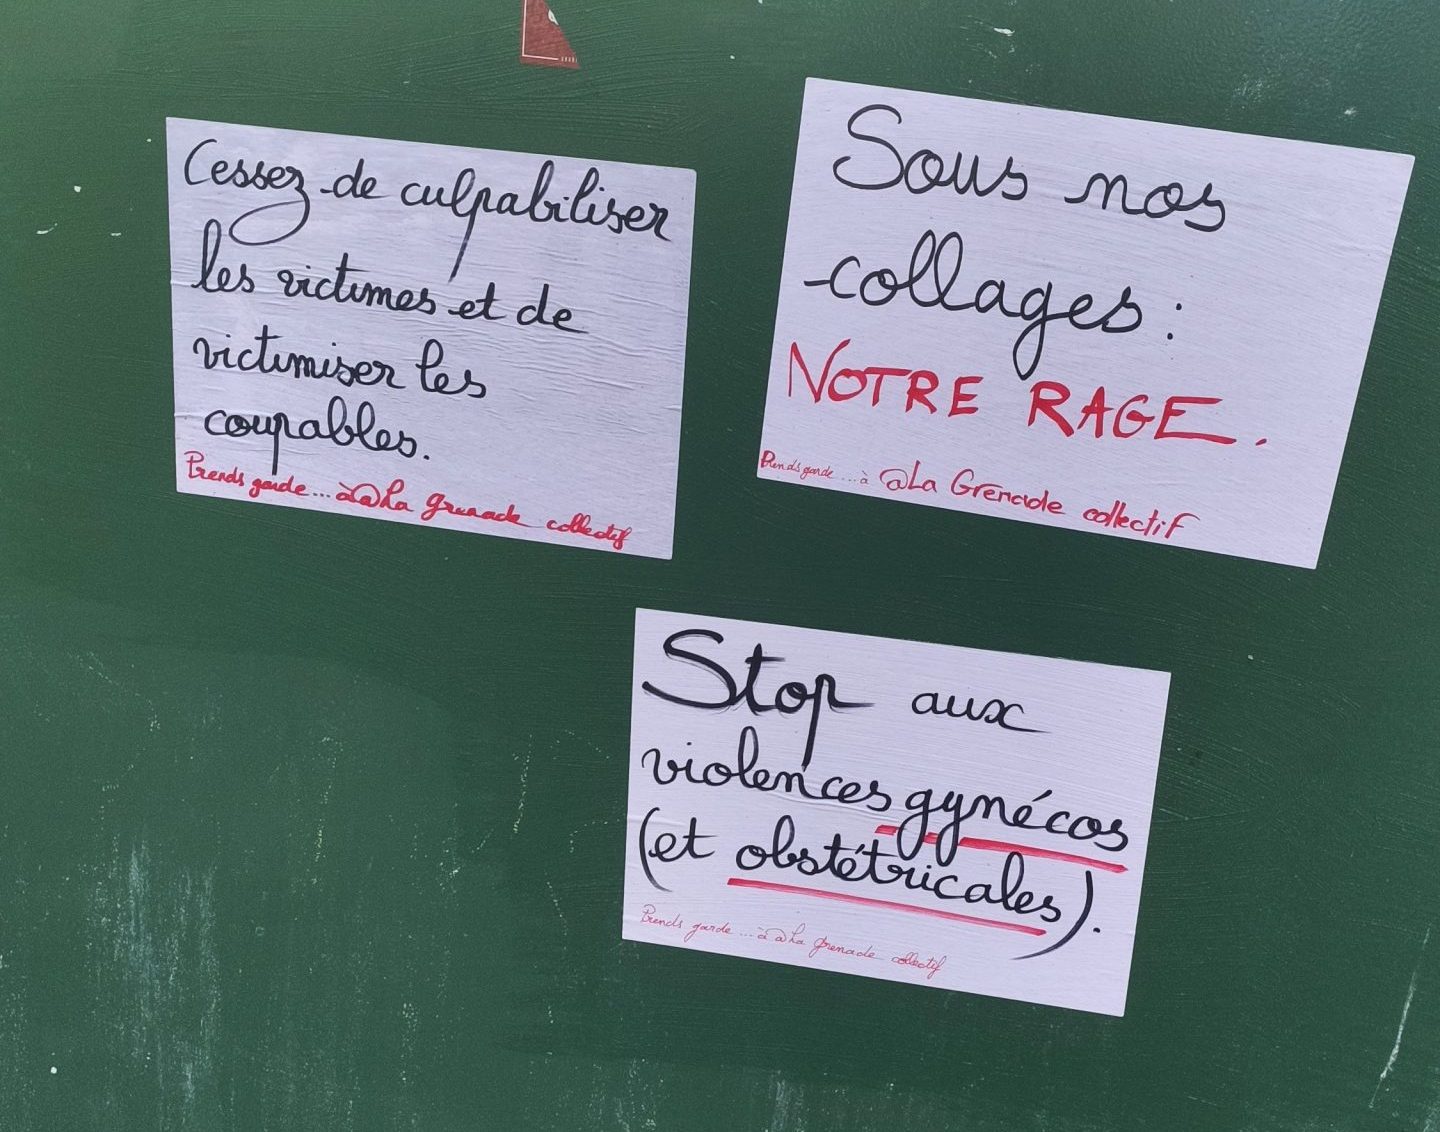 Cessez de culpabiliser
les victimes et de
victimiser les
coupables.
Prends garde... à @La grenade collectif
Sous nos
collages :
NOTRE RAGE.
Prends garde... à @La Grenade collectif
Stop aux
violences gynécos
(et obstétricales).
Prends garde... à @La grenade collectif